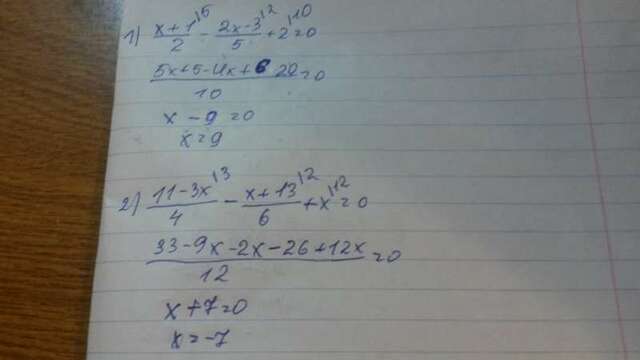 1) (x+1)/2 \5 - (2x-3)/5 \2 + 2 \10 = 0
(5x+5-4x+6 20)/10 = 0
x - 9 = 0
x = 9
2) (11-3x)/4 \3 - (x+13)/6 \2 + x \12 = 0
(33-9x-2x-26+12x)/12 = 0
x+7=0
x=-7